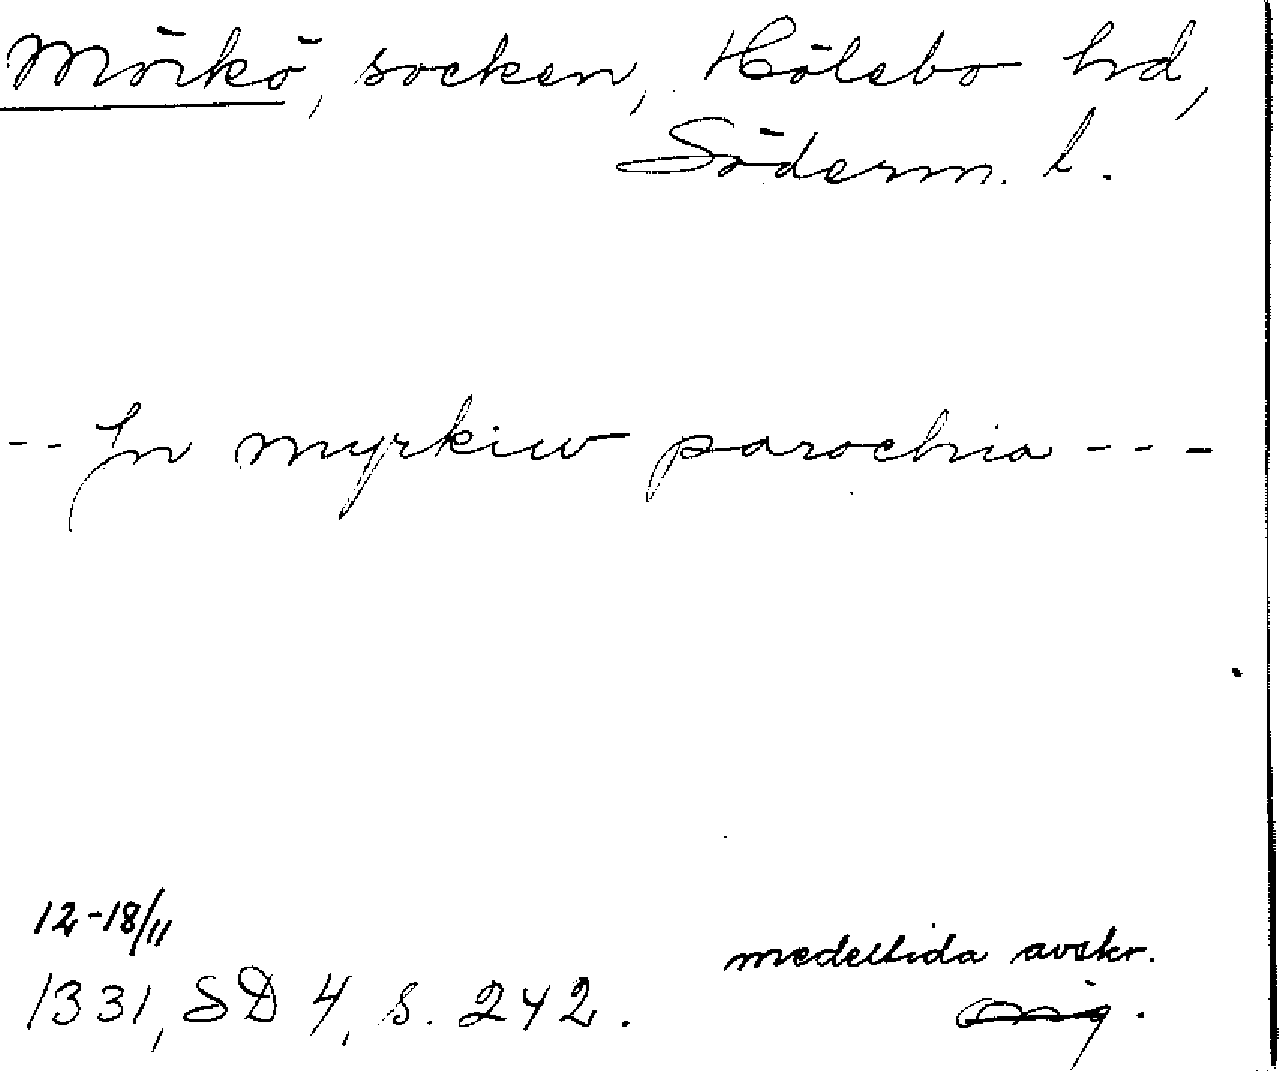 Mörkö, socken, Hölebo hd,
Söderm. l.
-- In myrkiw parochia ---
12-18/11
medeltida avskr.
1331, SD 4, s. 242.
orig.